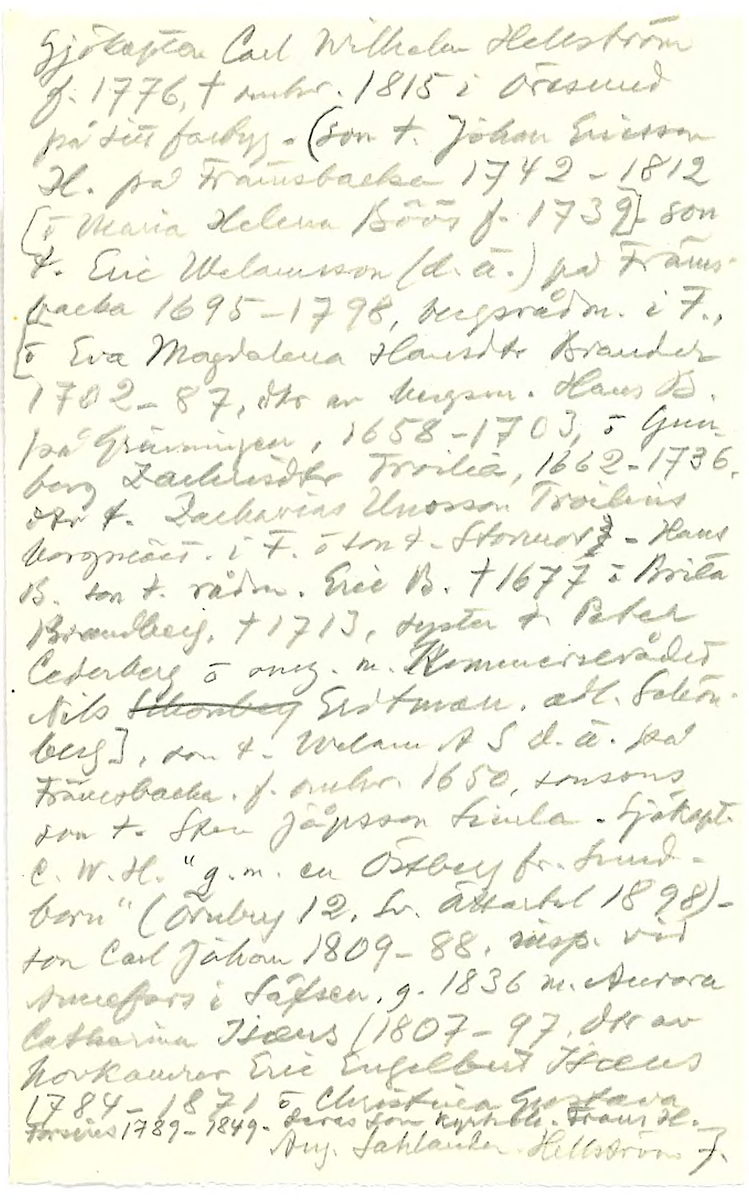 Sjökapten Carl Wilhelm Hellström
f. 1776, † omkr. 1815 i Öresund
på sitt fartyg. (son t. Johan Ericsson
H. på Främsbacka 1742 - 1812
[o Maria Helena Böös f. 1739]. son
t. Eric Welamsson (d.ä.) på Främs-
backa 1695-1798, bergsrådm. i F.,
[o Eva Magdalena Hansdtr Brander
1702-87, dtr av bergsm. Hans B.
på Gränningen, 1658-1703, o Gun-
borg Zachrisdtr Troilia, 1662-1736.
dtr t. Zacharias Unosson Troilius
borgmäst. i F. o son t. Stormor - Hans
B. son t. rådm. Eric B. †1677 o Brita
Brandberg, †1713, syster t. Peter
Cederberg o omg. m. Kommerserådet
Nils Schönberg Erstman. adl. Schön-
berg], son t. Welam A S d.ä. på
Främsbacka. f. omkr. 1650, sonsons
son t. Sten Jöpsson Simla. Sjökapt.
C. W. H. "g. m. en Östberg fr. Sund-
born" (Örnberg 12. Sv. Ättartal 1898)-
son Carl Johan 1809-88, insp. vid
Annefors i Säfsen, g. 1836 m. Aurora
Catharina Isæus (1807-97, dtr av
hovkamrer Eric Engelbert Isæus
1784-1871 o Christina Gustava
Forsius 1789-1849. deras son kyrkoh. Frans H.
Aug. Sahlander. Hellström 7.